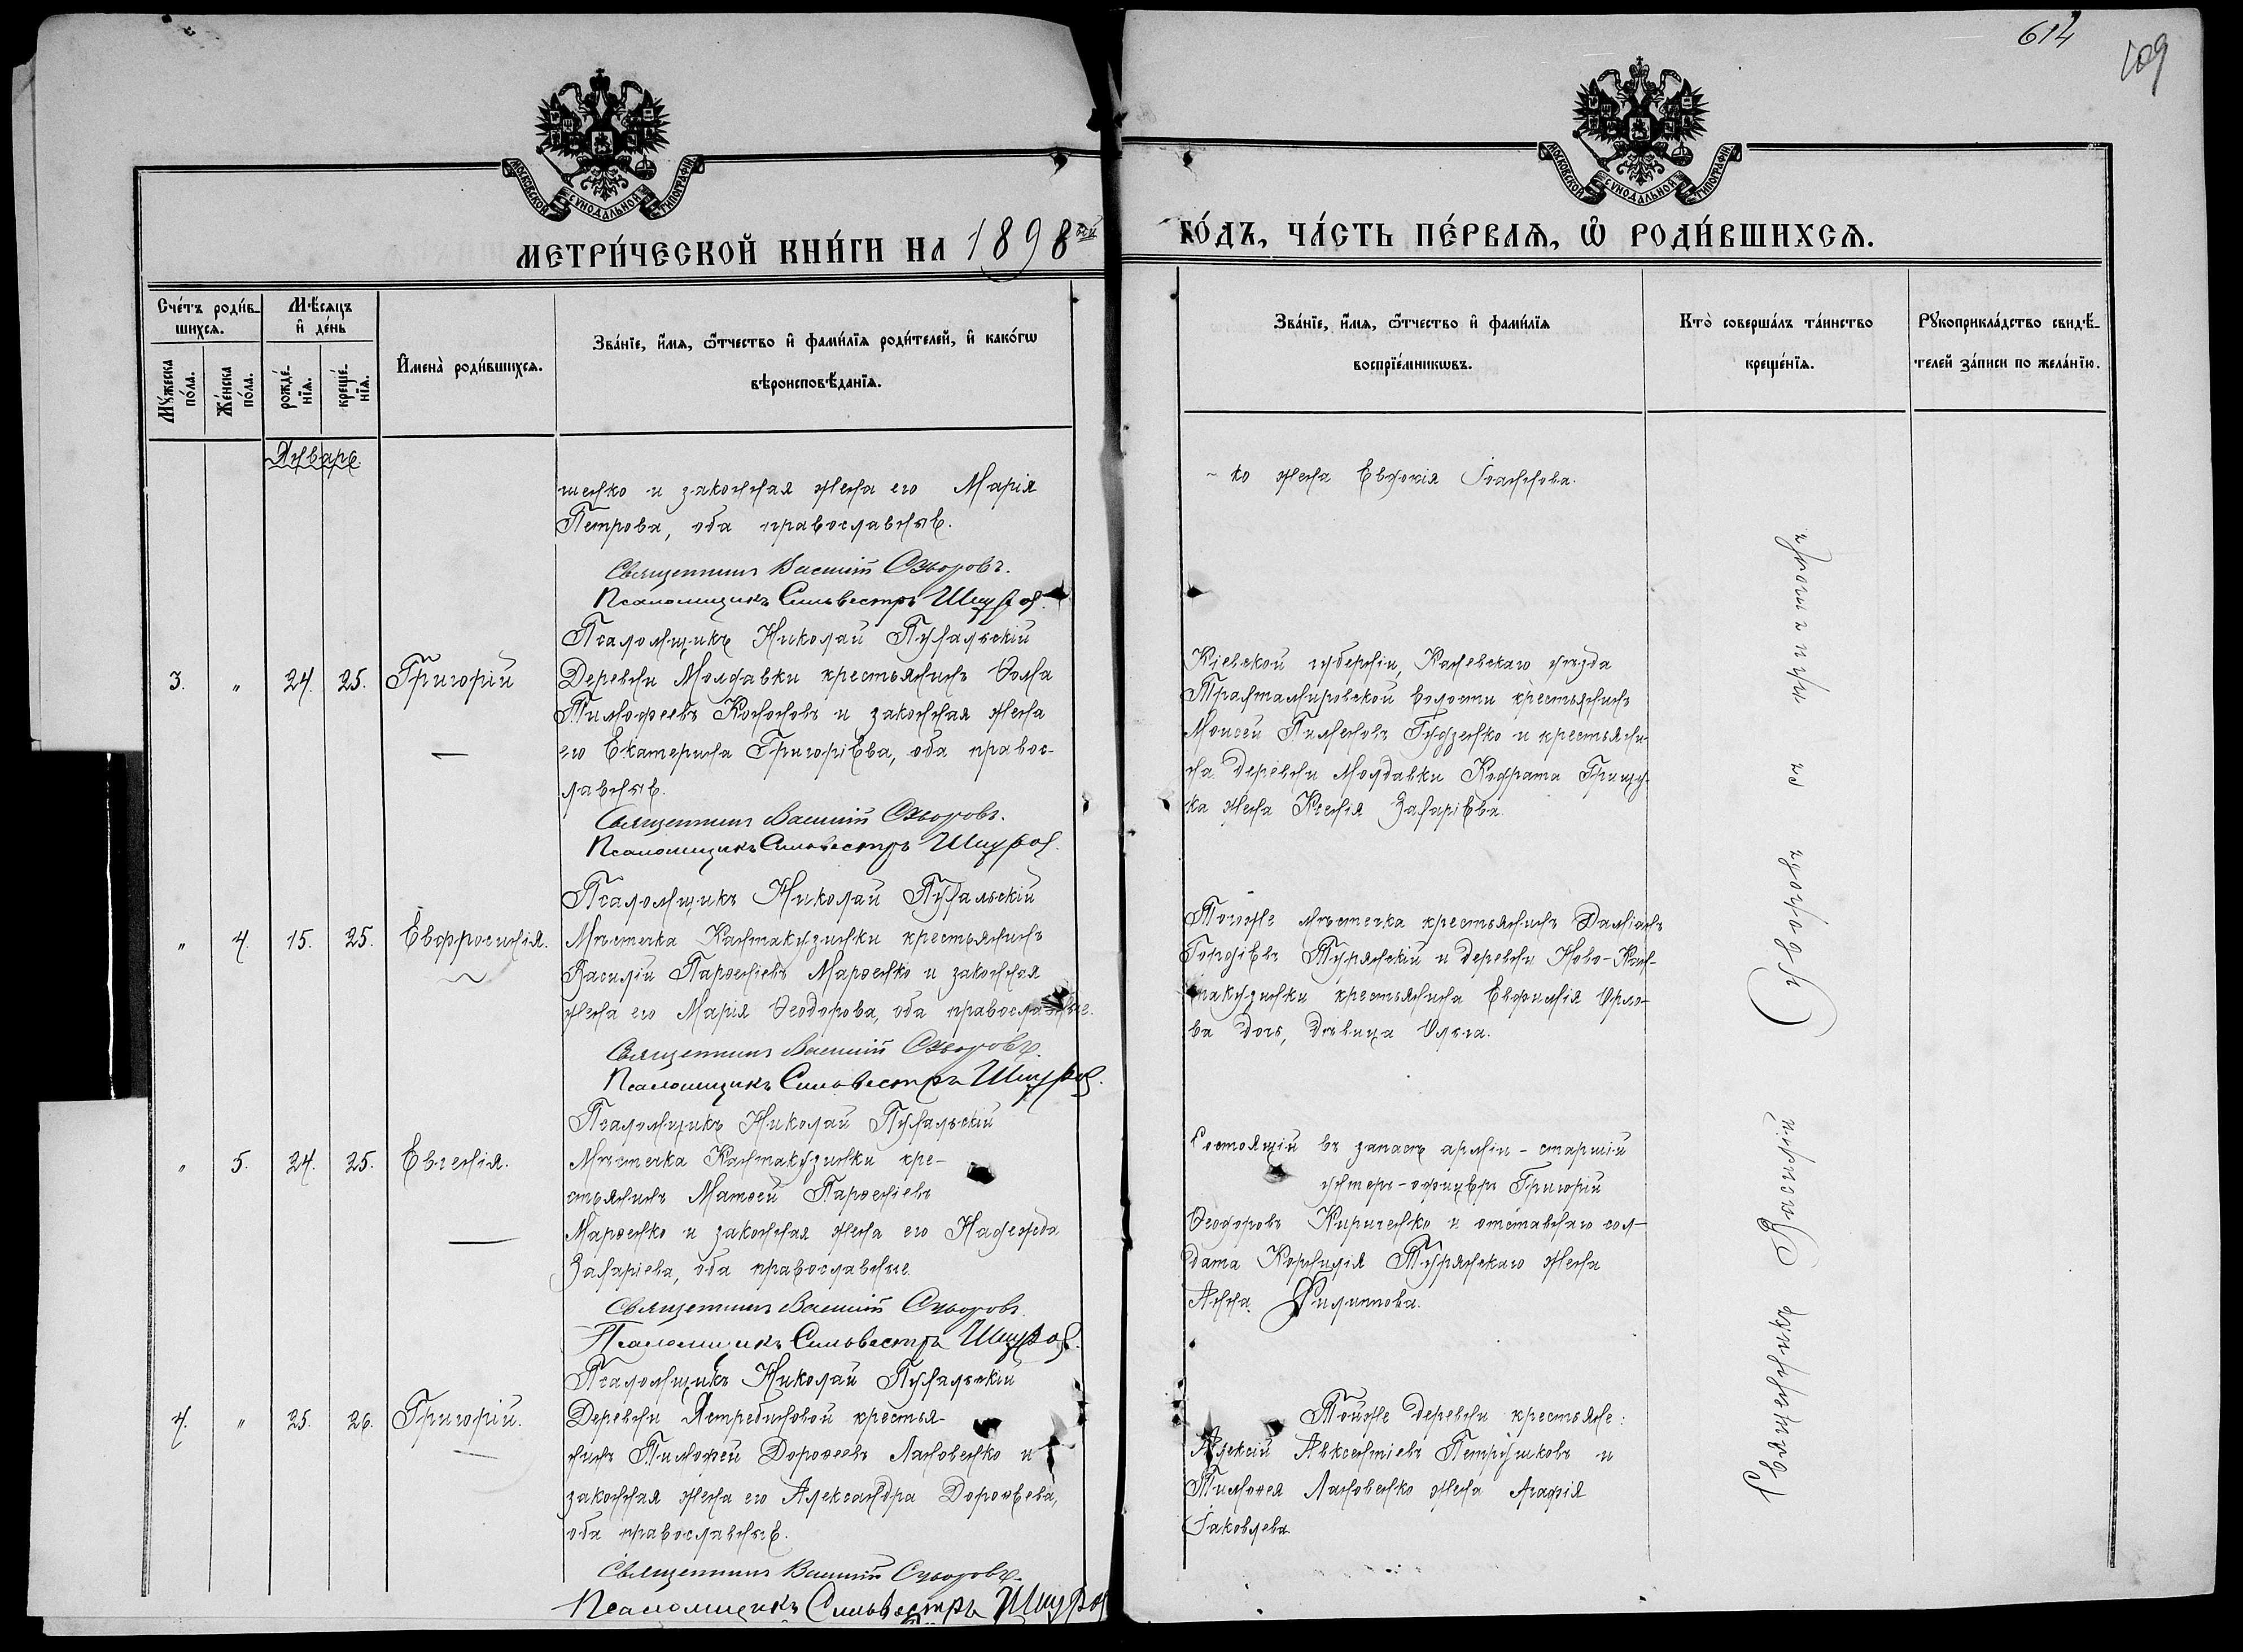 614
109
МОСКОВСКОЙ СУНОДАЛЬНОЙ ТИПОГРАФІИ
МОСКОВСКОЙ СУНОДАЛЬНОЙ ТИПОГРАФІИ
МЕТРИ́ЧЕСКОЙ КНИ́ГИ НА 1898 ой
ГО́ДЪ, ЧА́СТЬ ПЕ́РВАѦ, Ѡ҆ РОДИ́ВШИХСѦ.
Сче́тъ роди́в-
шихсѧ.
Мꙋ́жеска
по́ла.
Же́нска
по́ла.
Мѣ́сѧцъ
и҆ де́нь
рожде́-
нїѧ.
креще́-
нїѧ.
И҆мена̀ роди́вшихсѧ.
Зва́нїе, и҆́мѧ, ѻ҆́тчество и҆ фами́лїѧ роди́телей, и҆ како́гѡ
вѣроисповѣ́данїѧ.
Зва́нїе, и҆́мѧ, ѻ҆́тчество и҆ фами́лїѧ
воспрїе́мникѡвъ.
Кто̀ соверша́лъ та́инство
креще́нїѧ.
Рꙋкоприкла́дство свидѣ́-
телей за́писи по жела́нїю.
Январь.
шенко и законная жена его Марія
Петрова, оба православные.
Священникъ Василій Озеровъ.
Псаломщикъ Сильвестръ
Псаломщикъ Николай
- ко жена Евдокія Іоаннова.
3. " 24. 25. Григорій
Деревни Молдавки крестьянинъ Ѳома
Тимоѳеевъ Кононовъ и законная жена
его Екатерина Григоріева, оба правос-
лавные.
Священникъ Василій Озеровъ.
Псаломщикъ Сильвестръ
Псаломщикъ Николай
Кіевской губерніи, Каневскаго уѣзда
Трахтамировской волости крестьянинъ
Моисей Пименовъ Гудзенко и крестьяни-
на деревни Молдавки Кодрата Грищу-
ка жена Ксенія Захаріева.
" 4. 15. 25. Евфросинія.
Мѣстечка Кантакузинки крестьянинъ
Василій Парѳеніевъ Марченко и законная
жена его Марія Ѳеодорова, оба православные.
Священникъ Василій Озеровъ.
Псаломщикъ Сильвестръ
Псаломщикъ Николай
Тогоже мѣстечка крестьянинъ Даміанъ
Гордіевъ Турянскій и деревни Ново-Кан-
такузинки крестьянина Евфимія Орло-
ва дочь, дѣвица Ольга.
" 5. 24. 25. Евгенія.
Мѣстечка Кантакузинки кре-
стьянинъ Матѳей Парѳеніевъ
Марченко и законная жена его Надежда
Захаріева, оба православные.
Священникъ Василій Озеровъ.
Псаломщикъ Сильвестръ
Псаломщикъ Николай
Состоящій въ запасѣ арміи - старшій
унтеръ-офицеръ Григорій
Ѳеодоровъ Кириченко и отставнаго сол-
дата Корнилія Турянскаго жена
Анна Филиппова.
4. " 25. 26. Григорій.
Деревни Ястребиновой крестья-
нинъ Тимоѳей Дороѳеевъ Лановенко и
законная жена его Александра Дороѳеева,
оба православные.
Священникъ Василій Озеровъ.
Псаломщикъ Сильвестръ
Тойже деревни крестьяне:
Алексій Авксентіевъ Петрушковъ и
Тимоѳея Лановенко жена Агафія
Іаковлева.
Священникъ Василій Озеровъ съ